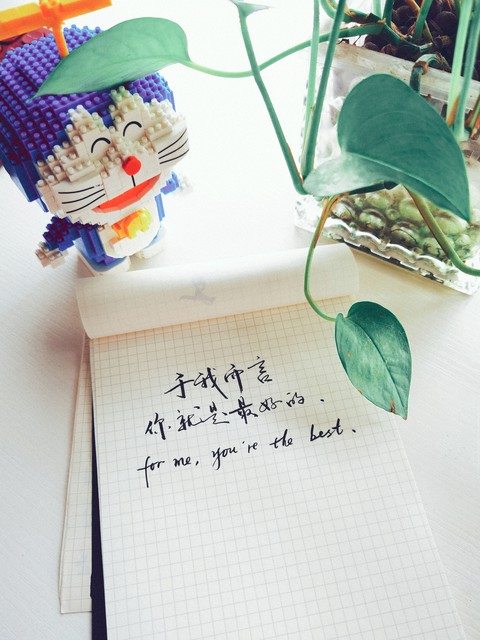 于我而言
你就是最好的.
for me, you're the best.